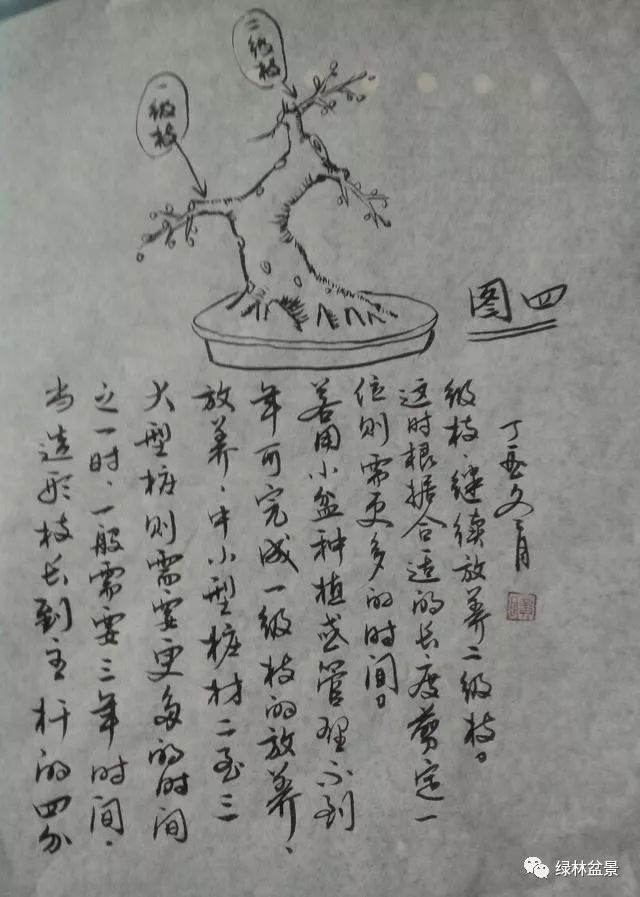 二级枝
一级枝
图四
当造形枝长到主杆的四分
之一时、一般需要三年时间、
大型桩则需要更多的时间
放养、中小型桩材二至三
年可完成一级枝的放养、
若用小盆种植或管理不到
位则需更多的时间。
这时根据合适的长度剪定一
级枝、继续放养二级枝。
丁酉冬月
绿林盆景